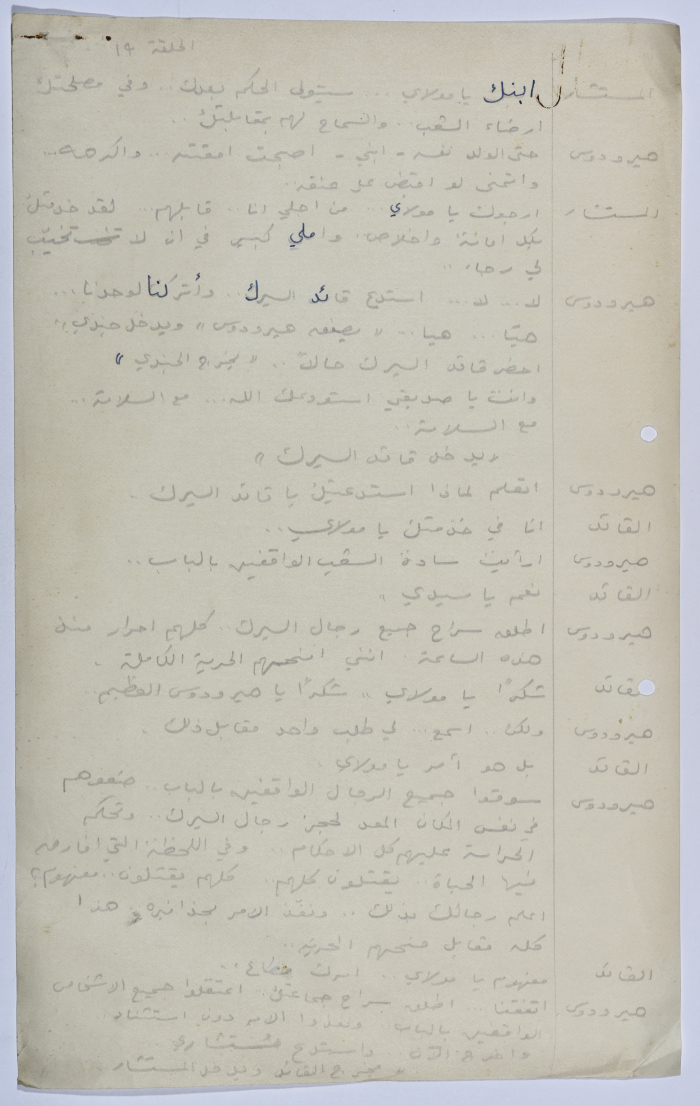 الحلقة ١٩
المستشار ابنك يا مولاي ... سيتولى الحكم بعدك .. وفي مصلحتك
ارضاء الشعب .. والسماح لهم بمقابلتك ..
هيرودوس حتى الولد نفسه - ابني - اصبحت امقته .. واكرهه ...
واتمنى لو اقبض على عنقه .
المستشار ارجوك يا مولاي ... من اجلي انا .. قابلهم ... لقد خدمتك
بكل امانة واخلاص .. واملي كبير في ان لا تخيّب
لي رجاء ..
هيرودوس لا ... لا ... استدع قائد السيرك .. وأتركنا لوحدنا ...
هيّا ... هيا ... « يصفق هيرودوس » ويدخل جندي »
احضر قائد السيرك حالاً .. « يخرج الجندي »
وانت يا صديقي استودعك الله ... مع السلامة ...
مع السلامة ..
« يدخل قائد السيرك »
هيرودوس اتعلم لماذا استدعيتك يا قائد السيرك .
القائد انا في خدمتك يا مولاي ..
هيرودوس ارأيت سادة الشعب الواقفين بالباب ..
القائد نعم يا سيدي .
هيرودوس اطلق سراح جميع رجال السيرك .. كلهم احرار منذ
هذه الساعة . انني امنحهم الحرية الكاملة .
القائد شكرًا يا مولاي .. شكرًا يا هيرودوس العظيم .
هيرودوس ولكن .. اسمع .. لي طلب واحد مقابل ذلك .
القائد بل هو أمر يا مولاي .
هيرودوس سوقوا جميع الرجال الواقفين بالباب .. ضعوهم
في نفس المكان المعد لحجز رجال السيرك .. وتحكم
الحراسة عليهم كل الاحكام ... وفي اللحظة التي افارق
فيها الحياة .. يقتلون كلهم .. كلهم يقتلون .. مفهوم ؟
اعلم رجالك بذلك .. ونفذ الامر بحذافيره .. هذا
كله مقابل منحهم الحرية ..
القائد مفهوم يا مولاي ... امرك مطاع ..
هيرودوس اتفقنا ... اطلق سراح جماعتك .. اعتقلوا جميع الاشخاص
الواقفين بالباب .. ونفذوا الامر دون استثناء ..
واخرج الآن .. واستدع مستشاري .
« يخرج القائد ويدخل المستشار